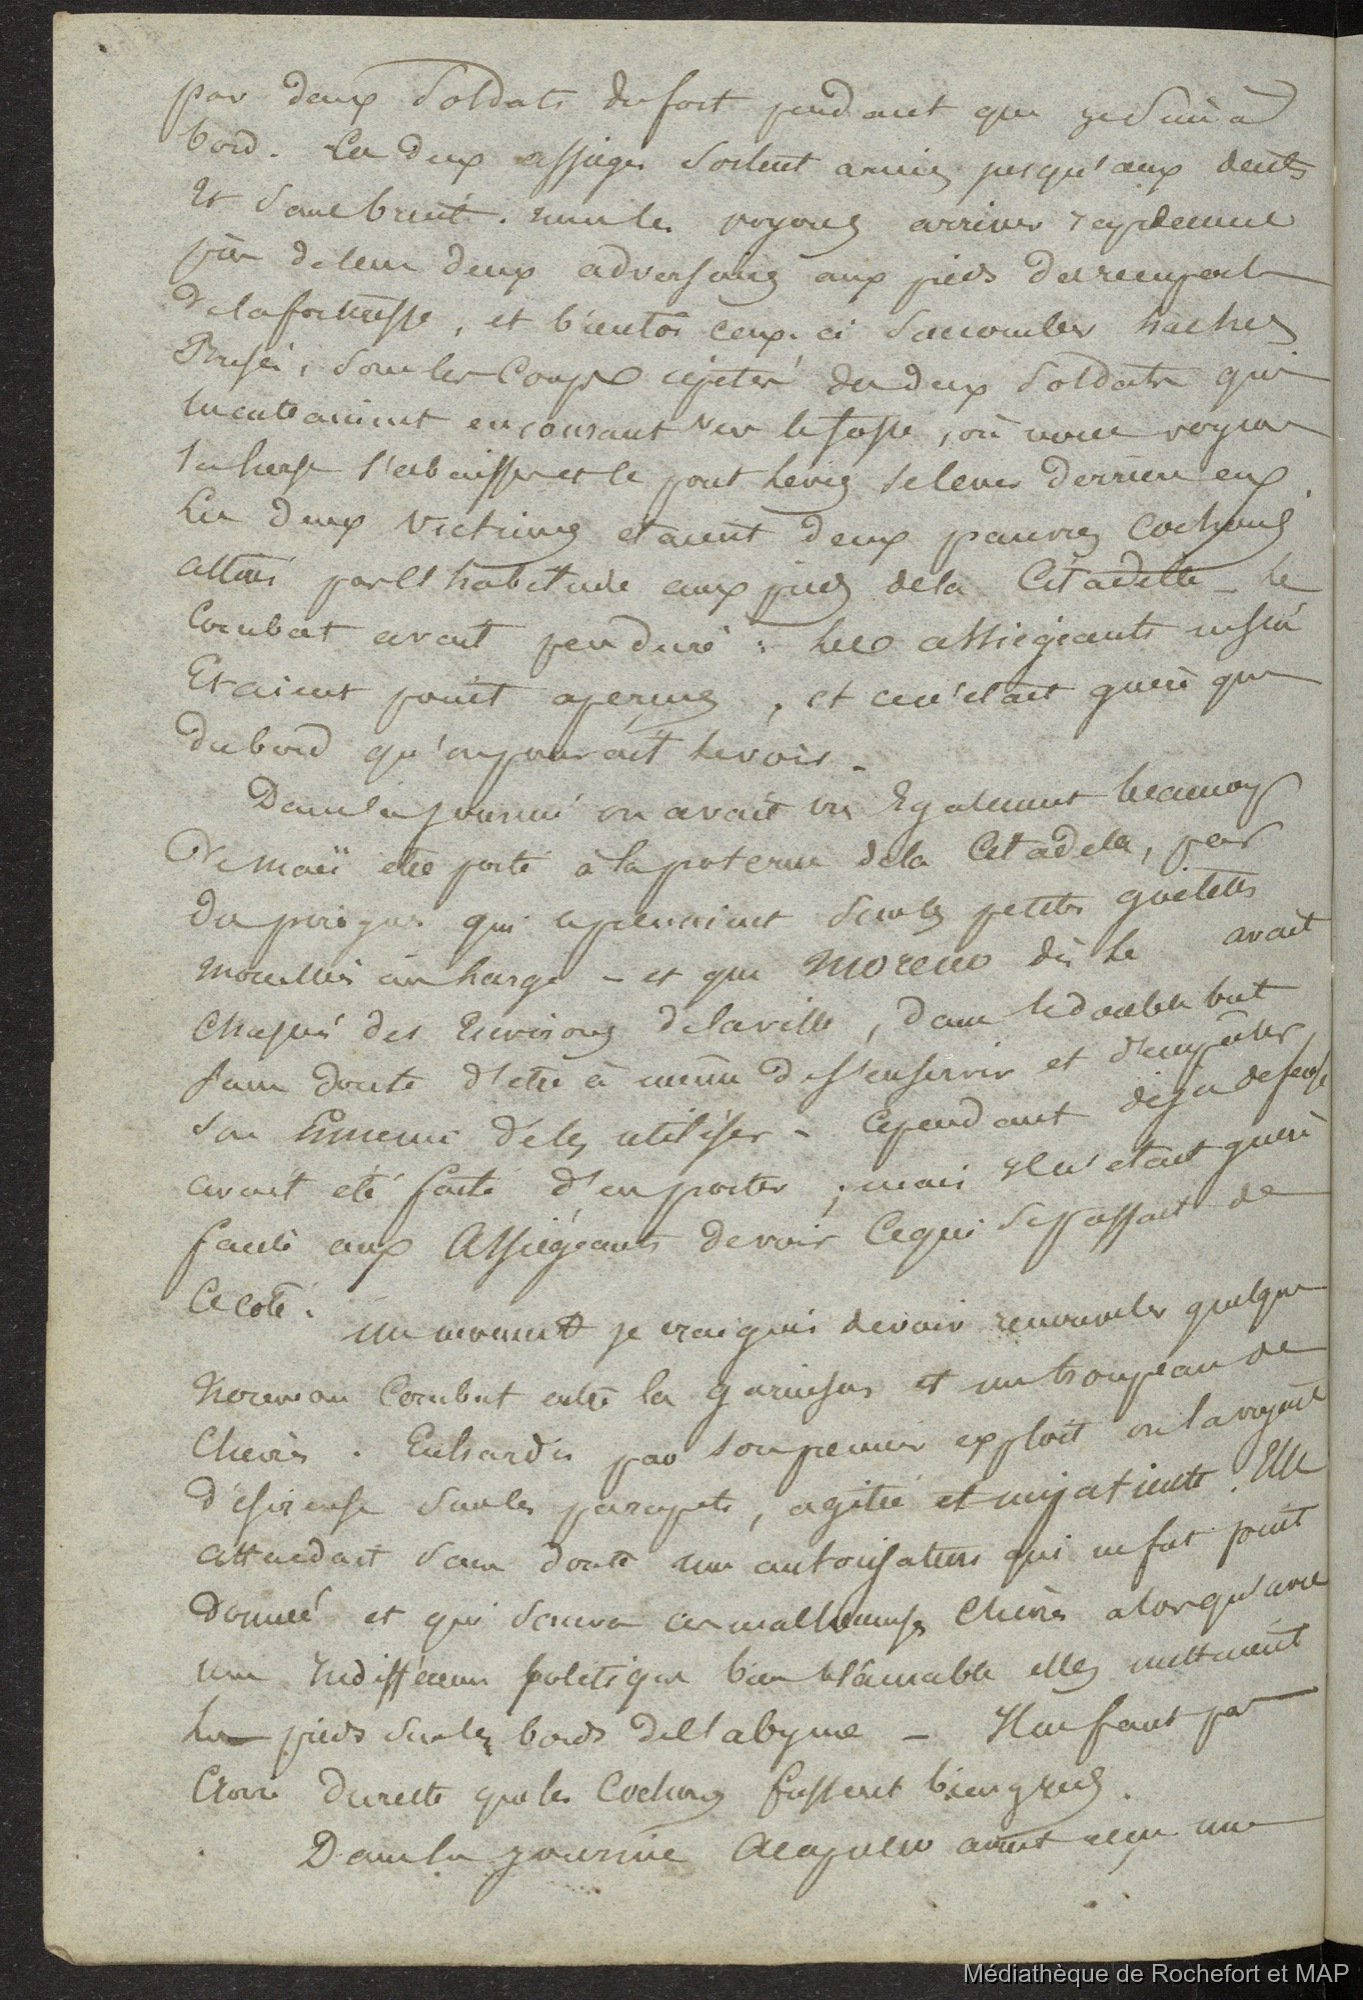 par deux Soldats du fort pendant que je Suis à
bord. Les deux assiégés Sortent armés jusqu'aux dents
Et Sans bruit. nous les voyons arriver rapidement
près de leurs deux adversaires aux pieds des remparts
de la forteresse, et bientôt ceux-ci Succomber hachés
Brisés, Sous les Coups répétés des deux Soldats qui
les entrainent en courant vers le fossé, où nous voyons
la herse S'abaisser et le pont levis se lever derrière eux.
Les deux Victimes étaient deux pauvres Cochons
attirés par l'habitude aux pieds de la Citadelle – le
Combat avait peu duré : Les assiégeants ne S'en
Etaient point aperçus, et ce n'était guère que
du bord qu'on pouvait le voir –
Dans la journée on avait vu Egalement beaucoup
De maïs être porté à la poterne de la Citadelle, par
des pirogues qui le prenaient Sur les petites goëlettes
mouillées au large – et que Moreno dès le avait
Chassés des Environs de la ville, dans le double but
Sans doute d'être à même de s'en servir et d'empêcher
Son Ennemi de les utiliser – Cependant déja defense
avait été faite d'en porter ; mais il n'était guère
facile aux Assiégeants de voir Ce qui Se passait de
Ce coté.
Un moment je craignis de voir renouveler quelque
Nouveau Combat entre la garnison et un troupeau de
Chèvres. Enhardie par Son premier exploit on la voyait
désireuse Sur les parapets, agitée et impatiente. Elle
attendait Sans doute une autorisation qui ne fut point
Donnée et qui Sauva ces malheureuses Chèvres alors qu'avec
une Indifférence politique bien blâmable elles mettaient
les pieds Sur les bords de l'abyme – Il ne faut pas
Croire du reste que les Cochons fussent bien gras.
Dans la journée Acapulco avait reçu une
Médiathèque de Rochefort et MAP